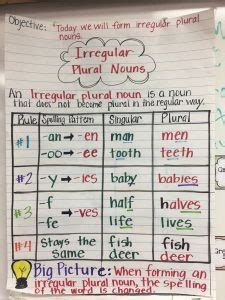 Objective: "Today we will form irregular plural
nouns.
Irregular
Plural Nouns
An Irregular plural noun is a noun
that does not become plural in the regular way.
Rule Spelling Pattern Singular Plural
#1 -an → -en man men
-oo → -ee tooth teeth
#2 -y → -ies baby babies
#3 -f → -ves half halves
-fe life lives
#4 Stays the same fish fish
deer deer
Big Picture: When forming an
irregular plural noun, the spelling
of the word is changed.